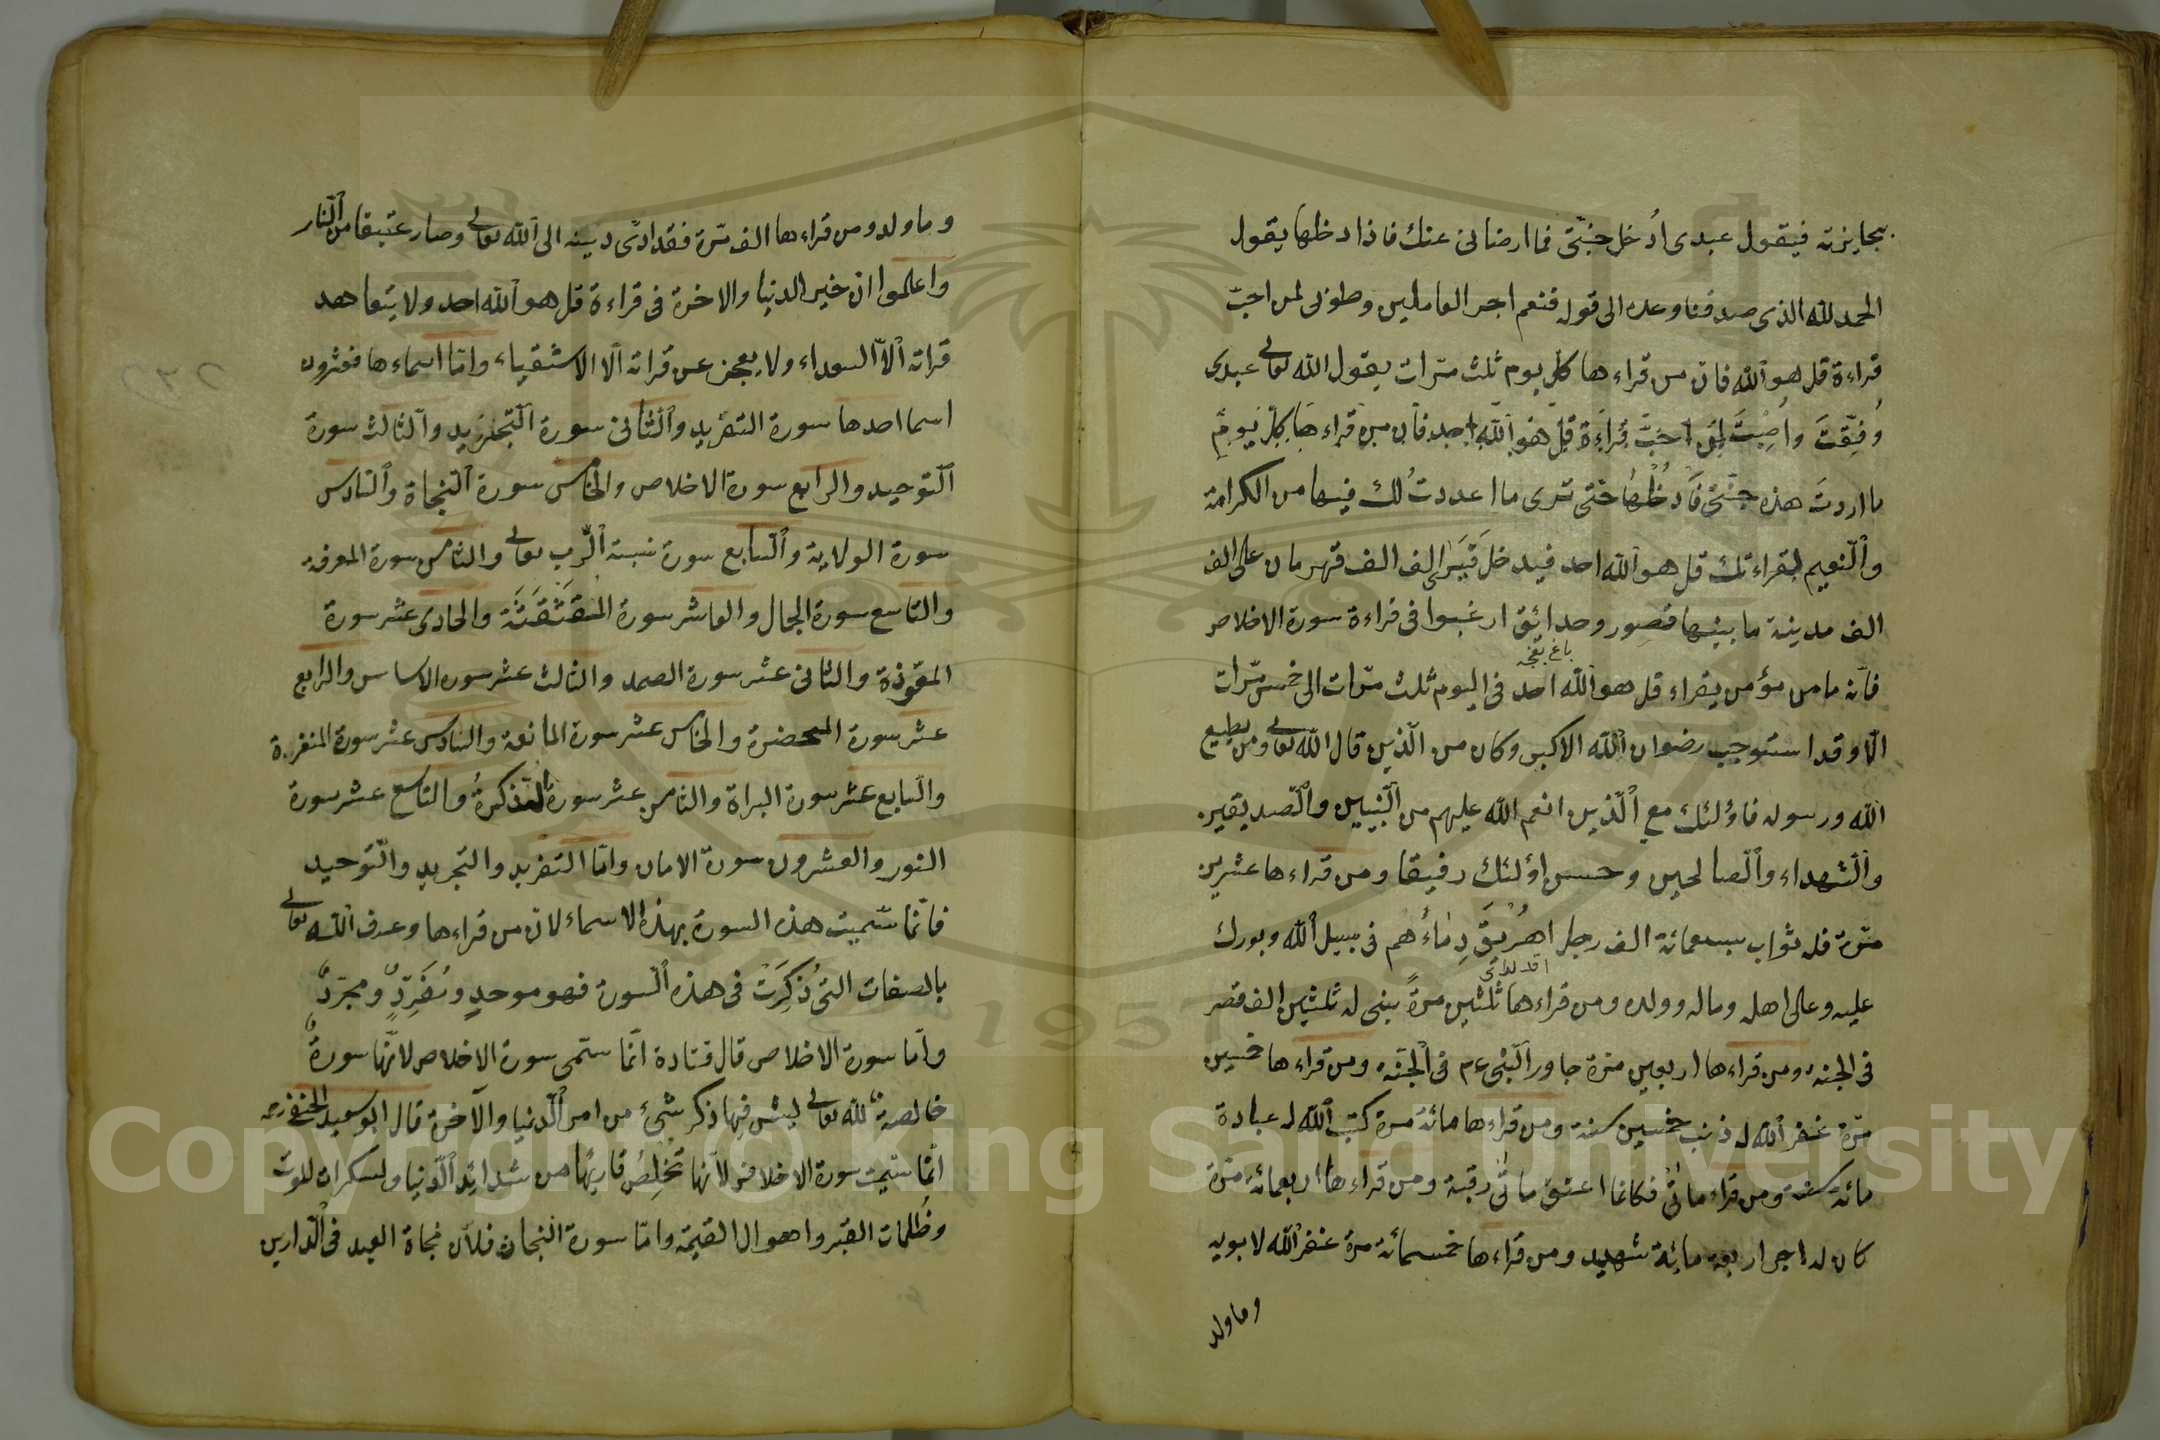 بجايزته فيقول عبدى اُدخل جنّتى فما ارضانى عنك فاذا دخلها يقول
الحمد لله الذى صدقنا وعده الى قوله فنعم اجر العاملين وطوبى لمن احبّ
قراءة قل هو الله فان من قراءها كل يوم ثلث مرّات يقول الله تعالى عبدى
وُفِّقتَ واُصِبْتَ لمن احبّ قراءة قل هو الله احد فان من قراءها كل يومٍ
ما اردتَ هذه جنّتى فَادخُلها حتى ترى ما اعددتُ لك فيها من الكرامة
والنّعيم لقراءتك قل هو الله احد فيدخل فيَرَى الف الف قهرمان على الف
الف مدينة ما بينها قصور وحدائق ارغبوا فى قراءة سورة الاخلاص
باغ بقچه
فانّه ما من مؤمن يقراء قل هو الله احد فى اليوم ثلث مرّات الى خمس مرّات
الّا وقد استوجب رضوان الله الاكبر وكان من الّذين قال الله تعالى ومن يطيع
الله ورسوله فاؤلئك مع الّذين انعم الله عليهم من النّبيين والصّديقين
والشّهداء والصّالحين وحسن اولئك رفيقا ومن قراءها عشرين
مرّة فله ثواب سبعمائة الف رجل اهُريقَ دِماءُهم فى سبيل الله وبورك
عليه وعلى اهله وماله وولده ومن قراءها ثلثين مرةً بنى له ثلثين الف قصر
فى الجنة ومن قراءها اربعين مرّة جاور النّبى عم فى الجنّة ومن قراءها خمسين
مرّة غفر الله له ذنب خمسين سنة ومن قراءها مائة مرة كتب الله له عبادة
مائة سنة ومن قراء مائتى فكانما اعتق مائتى رقبة ومن قراءها اربعمائة مرّة
كان له اجر اربعة مائة شهيد ومن قراءها خمسمائة مرة غفر الله لابويه
وما ولد
وما ولد ومن قراءها الف مرّة فقد ادّى دَينه الى الله تعالى وصار عتيقا من النّار
واعلموا ان خير الدنيا والاخرة فى قراءة قل هو الله احد ولا يتعاهد
قراته الاّ السعداء ولا يعجز عن قراته الّا الاشقياء وامّا اسماءها فعشرون
اسما احدها سورة التفريد والثّانى سورة التّجريد والثّالث سورة
التّوحيد والرابع سورة الاخلاص والخامس سورة النّجاة والسّادس
سورة الولاية والسّابع سورة نسبة الرّب تعالى والثامن سورة المعرفة
والتاسع سورة الجمال والعاشر سورة المقشقشة والحادى عشر سورة
المعوّذة والثانى عشر سورة الصمد والثالث عشر سوره الاساس والرابع
عشر سورة المحضرة والخامس عشر سورة المانعة والسادس عشر سورة المنفرة
والسّابع عشر سورة البراة والثامن عشر سورة المذكرةُ والتاسع عشر سورة
النور والعشرون سورة الامان وامّا التفريد والتجريد والتّوحيد
فانّما سمّيت هذه السورة بهذه الاسماء لانّ من قراءها وعرف الله تعالى
بالصفات التى ذُكِرَت فى هذه السّورة فهو موحدٍ ومُفَرِّدٌ ومجرّدٌ
وامّا سورة الاخلاص قال قتادة انّما ستمى سورة الاخلاص لانّها سورةٌ
خالصة لله تعالى ليس فيها ذكر شئ من امر الدّنيا والآخرة قال ابو سعيد الحنفى رحمه
انّما سمّيت سورة الاخلاص لانّها تُخْلِصُ قاريها من شدائد الدّنيا ولسكرات للموت
وظُلمات القبر واهوال القيمة وامّا سورة النجات فلأن نجاة العبد فى الدّارين
Copyright © King Saud University
1957